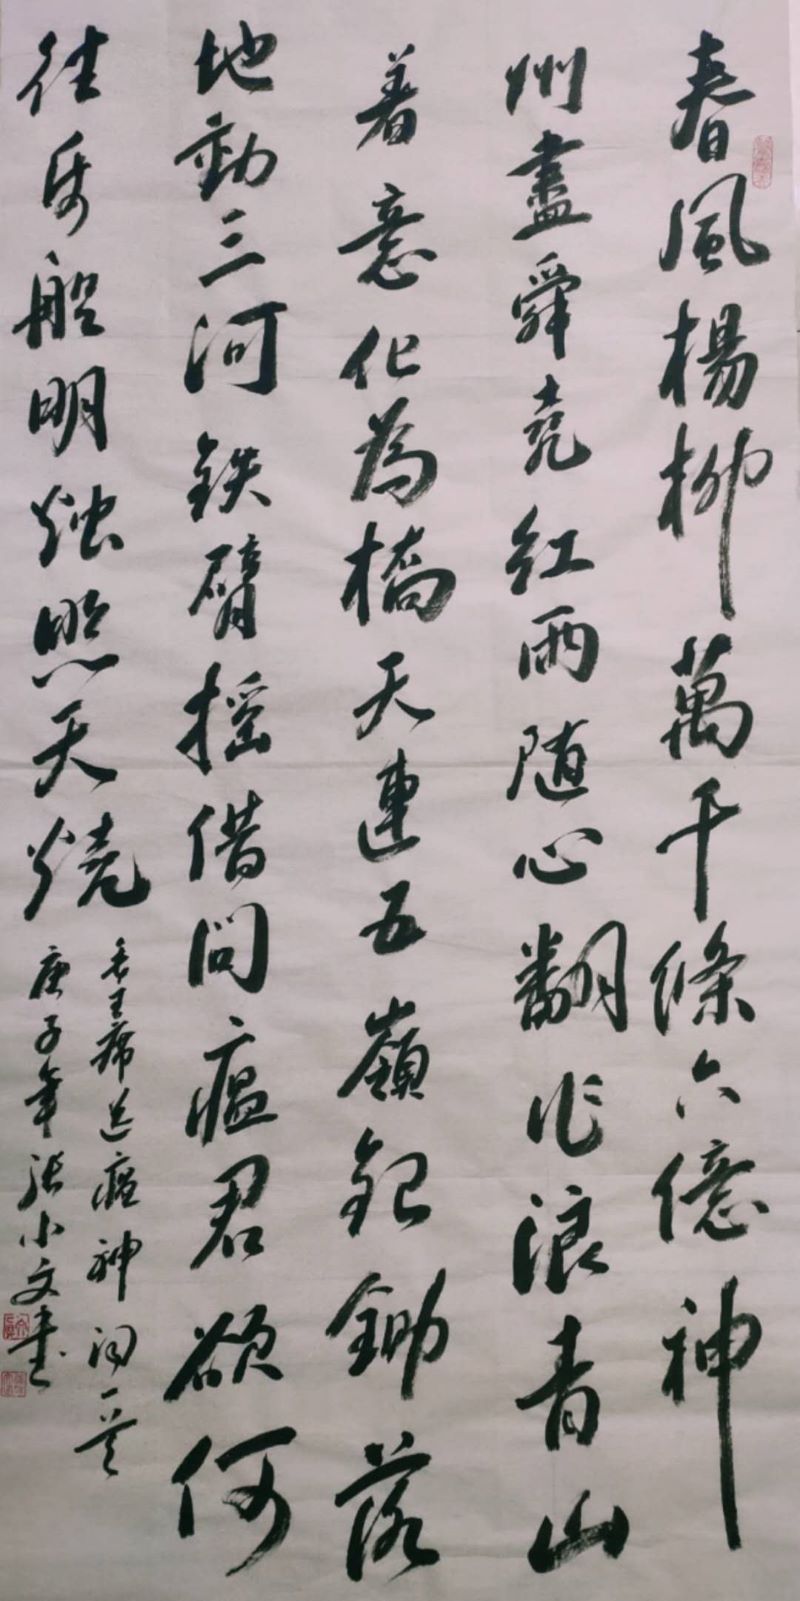 春風楊柳萬千條六億神
州盡舜堯紅雨随心翻作浪青山
着意化為橋天連五嶺銀鋤落
地動三河鉄臂摇借問瘟君欲何
往紙船明烛照天燒
毛主席送瘟神词一首
庚子年张小文书